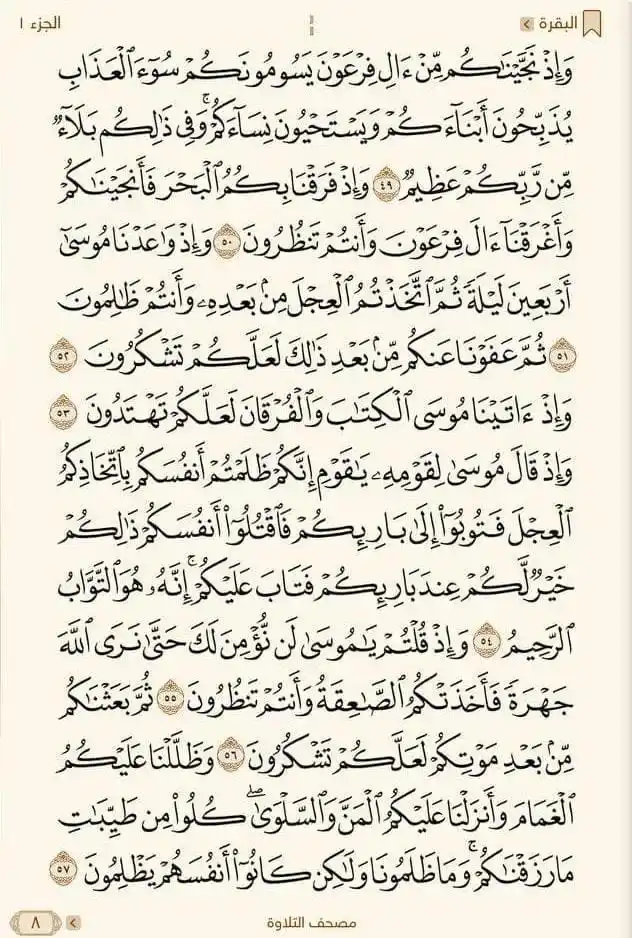 البقرة
الجزء ١
وَإِذْ نَجَّيْنَٰكُم مِّنْ ءَالِ فِرْعَوْنَ يَسُومُونَكُمْ سُوٓءَ ٱلْعَذَابِ
يُذَبِّحُونَ أَبْنَآءَكُمْ وَيَسْتَحْيُونَ نِسَآءَكُمْ ۚ وَفِى ذَٰلِكُم بَلَآءٌ
مِّن رَّبِّكُمْ عَظِيمٌ ٤٩ وَإِذْ فَرَقْنَا بِكُمُ ٱلْبَحْرَ فَأَنجَيْنَٰكُمْ
وَأَغْرَقْنَآ ءَالَ فِرْعَوْنَ وَأَنتُمْ تَنظُرُونَ ٥٠ وَإِذْ وَٰعَدْنَا مُوسَىٰٓ
أَرْبَعِينَ لَيْلَةً ثُمَّ ٱتَّخَذْتُمُ ٱلْعِجْلَ مِنۢ بَعْدِهِۦ وَأَنتُمْ ظَٰلِمُونَ
٥١ ثُمَّ عَفَوْنَا عَنكُم مِّنۢ بَعْدِ ذَٰلِكَ لَعَلَّكُمْ تَشْكُرُونَ ٥٢
وَإِذْ ءَاتَيْنَا مُوسَى ٱلْكِتَٰبَ وَٱلْفُرْقَانَ لَعَلَّكُمْ تَهْتَدُونَ ٥٣
وَإِذْ قَالَ مُوسَىٰ لِقَوْمِهِۦ يَٰقَوْمِ إِنَّكُمْ ظَلَمْتُمْ أَنفُسَكُم بِٱتِّخَاذِكُمُ
ٱلْعِجْلَ فَتُوبُوٓا۟ إِلَىٰ بَارِئِكُمْ فَٱقْتُلُوٓا۟ أَنفُسَكُمْ ذَٰلِكُمْ
خَيْرٌ لَّكُمْ عِندَ بَارِئِكُمْ فَتَابَ عَلَيْكُمْ ۚ إِنَّهُۥ هُوَ ٱلتَّوَّابُ
ٱلرَّحِيمُ ٥٤ وَإِذْ قُلْتُمْ يَٰمُوسَىٰ لَن نُّؤْمِنَ لَكَ حَتَّىٰ نَرَى ٱللَّهَ
جَهْرَةً فَأَخَذَتْكُمُ ٱلصَّٰعِقَةُ وَأَنتُمْ تَنظُرُونَ ٥٥ ثُمَّ بَعَثْنَٰكُم
مِّنۢ بَعْدِ مَوْتِكُمْ لَعَلَّكُمْ تَشْكُرُونَ ٥٦ وَظَلَّلْنَا عَلَيْكُمُ
ٱلْغَمَامَ وَأَنزَلْنَا عَلَيْكُمُ ٱلْمَنَّ وَٱلسَّلْوَىٰ ۖ كُلُوا۟ مِن طَيِّبَٰتِ
مَا رَزَقْنَٰكُمْ ۚ وَمَا ظَلَمُونَا وَلَٰكِن كَانُوٓا۟ أَنفُسَهُمْ يَظْلِمُونَ ٥٧
مصحف التلاوة
٨